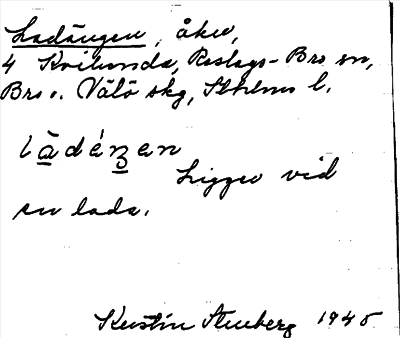 Ladängen, åker,
4 Kvilunda, Roslags-Bro sn,
Bro o. Vätö skg, Sthlms l.
lādéngen
Ligger vid
en lada.
Kerstin Stenberg 1945